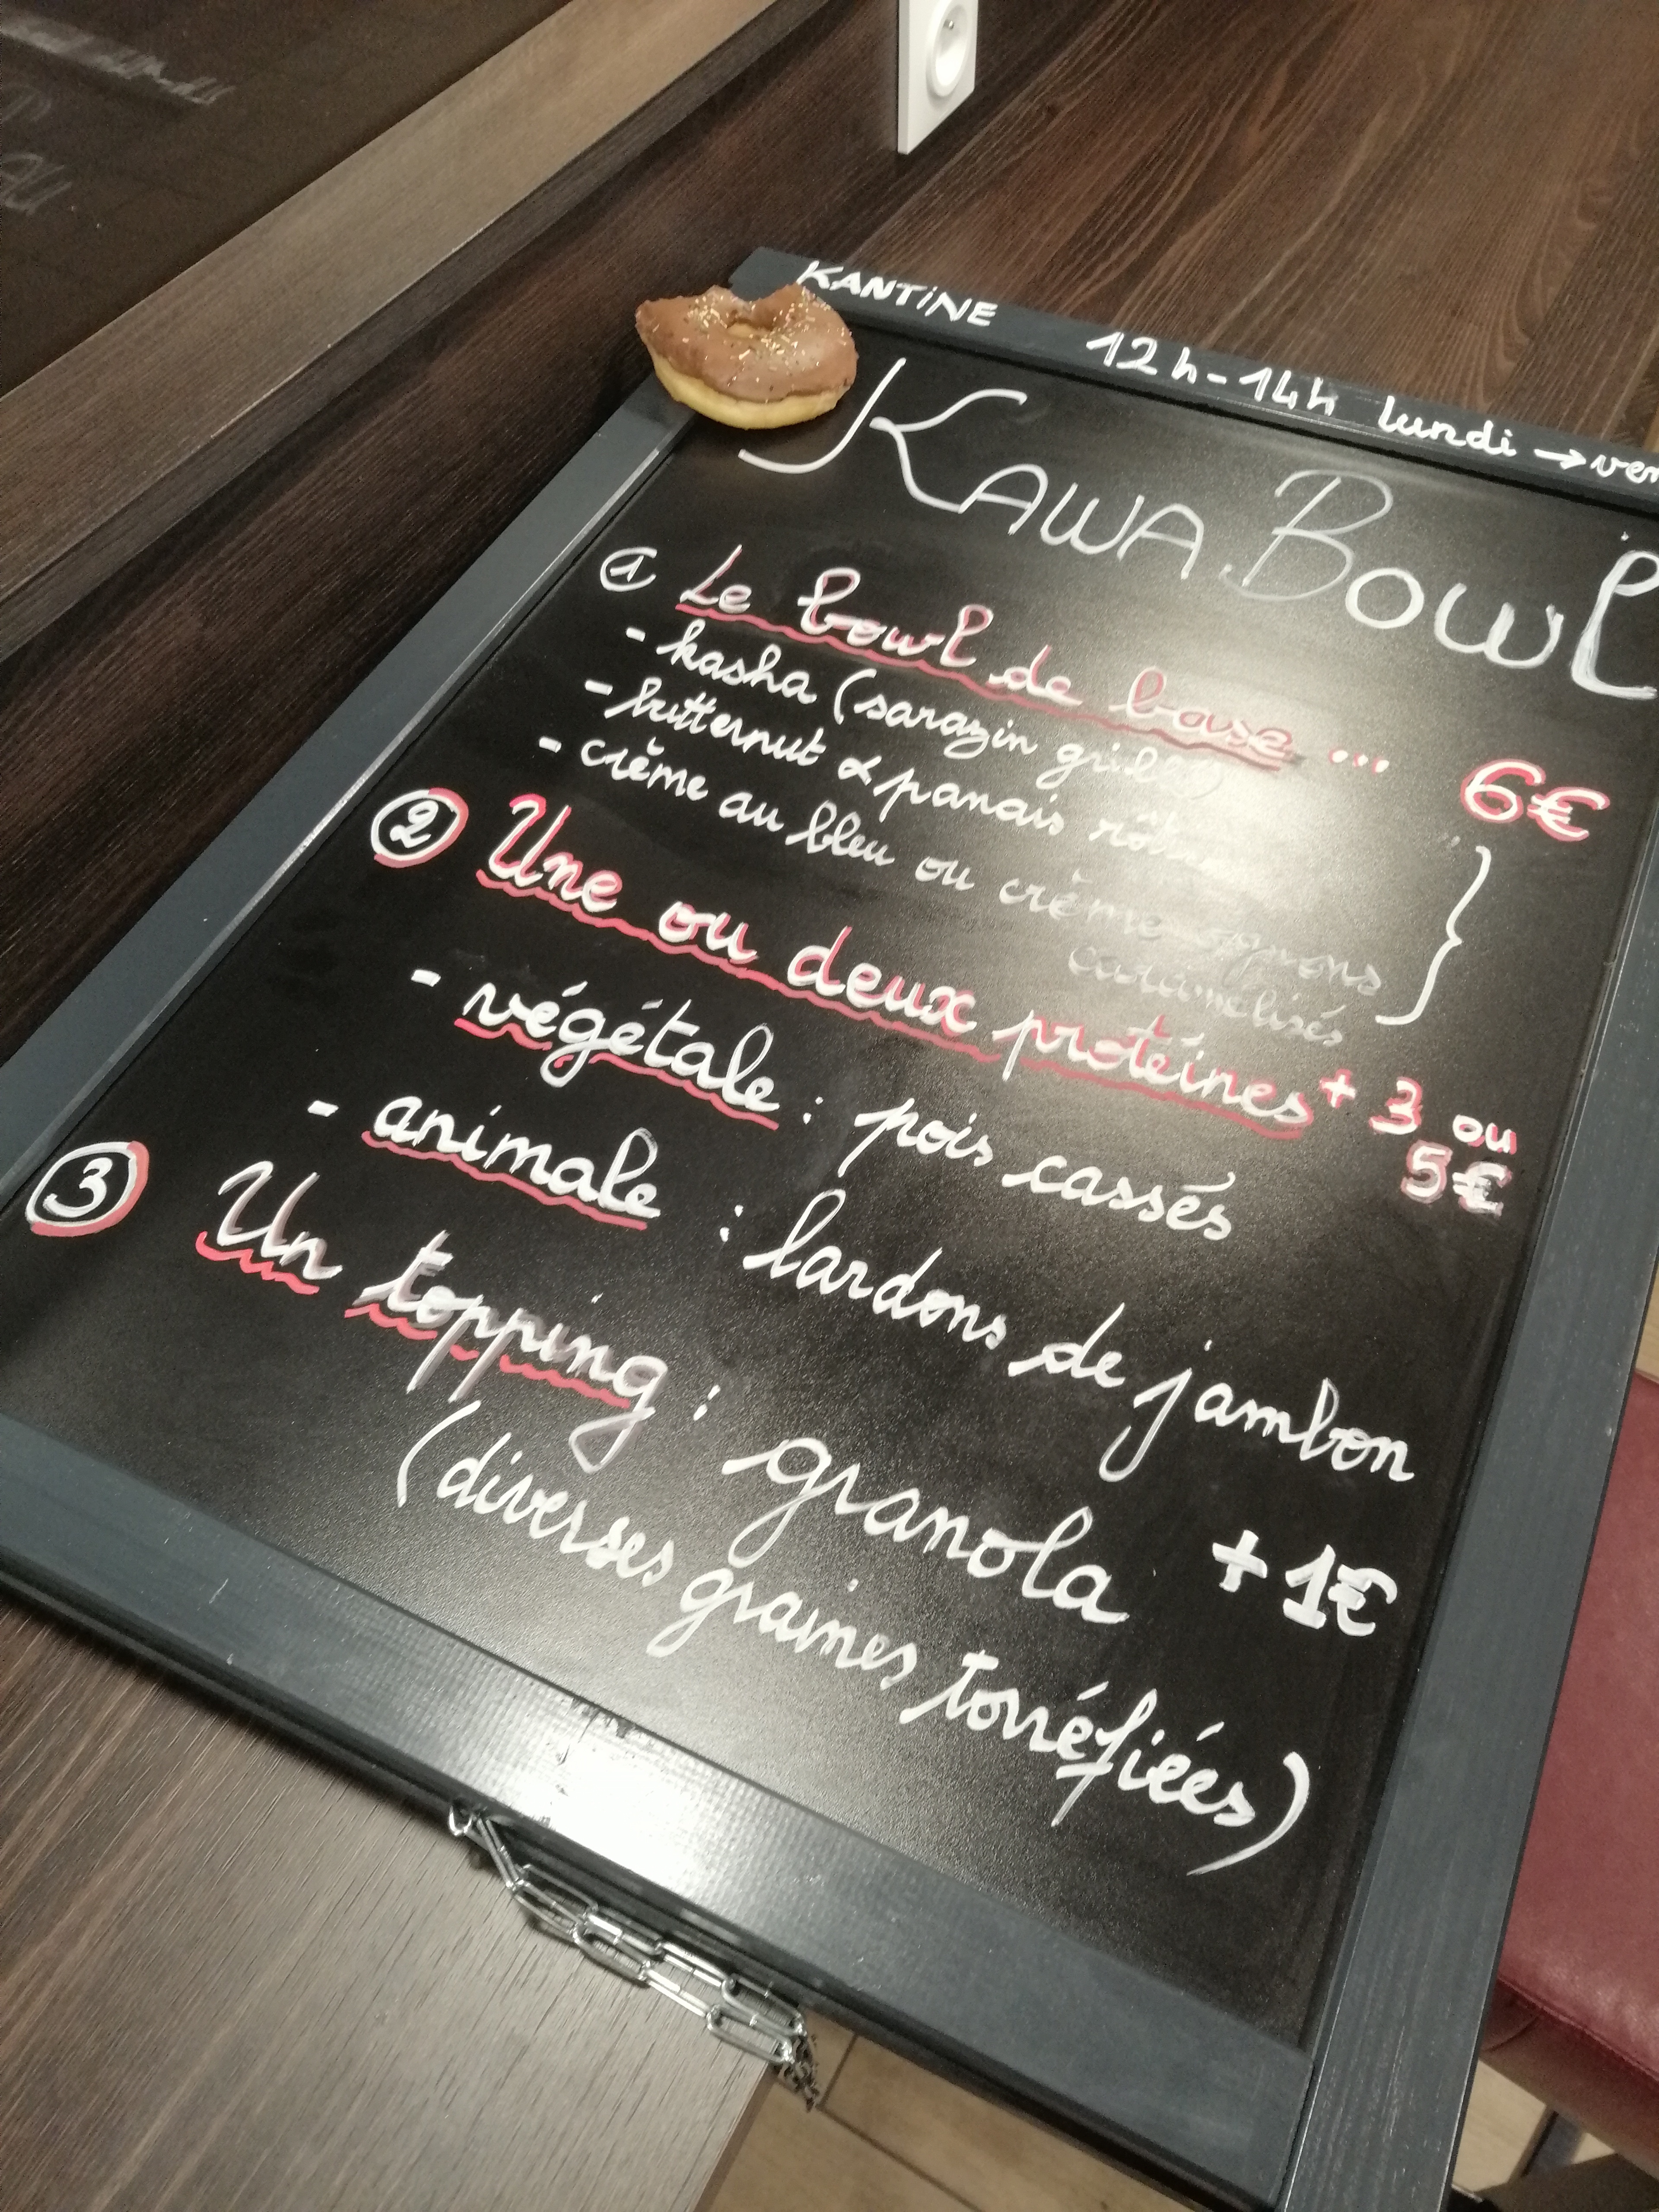 KANTINE 12h-14h lundi → ven
KAWA.BOWL
① Le bowl de base ... 6€
- kasha (sarazin grillé)
- butternut & panais rôtis
- crème au bleu ou crème oignons
caramélisés
② Une ou deux protéines + 3 ou
5€
- végétale : pois cassés
- animale : lardons de jambon
③ Un topping : granola + 1€
(diverses graines torréfiées)